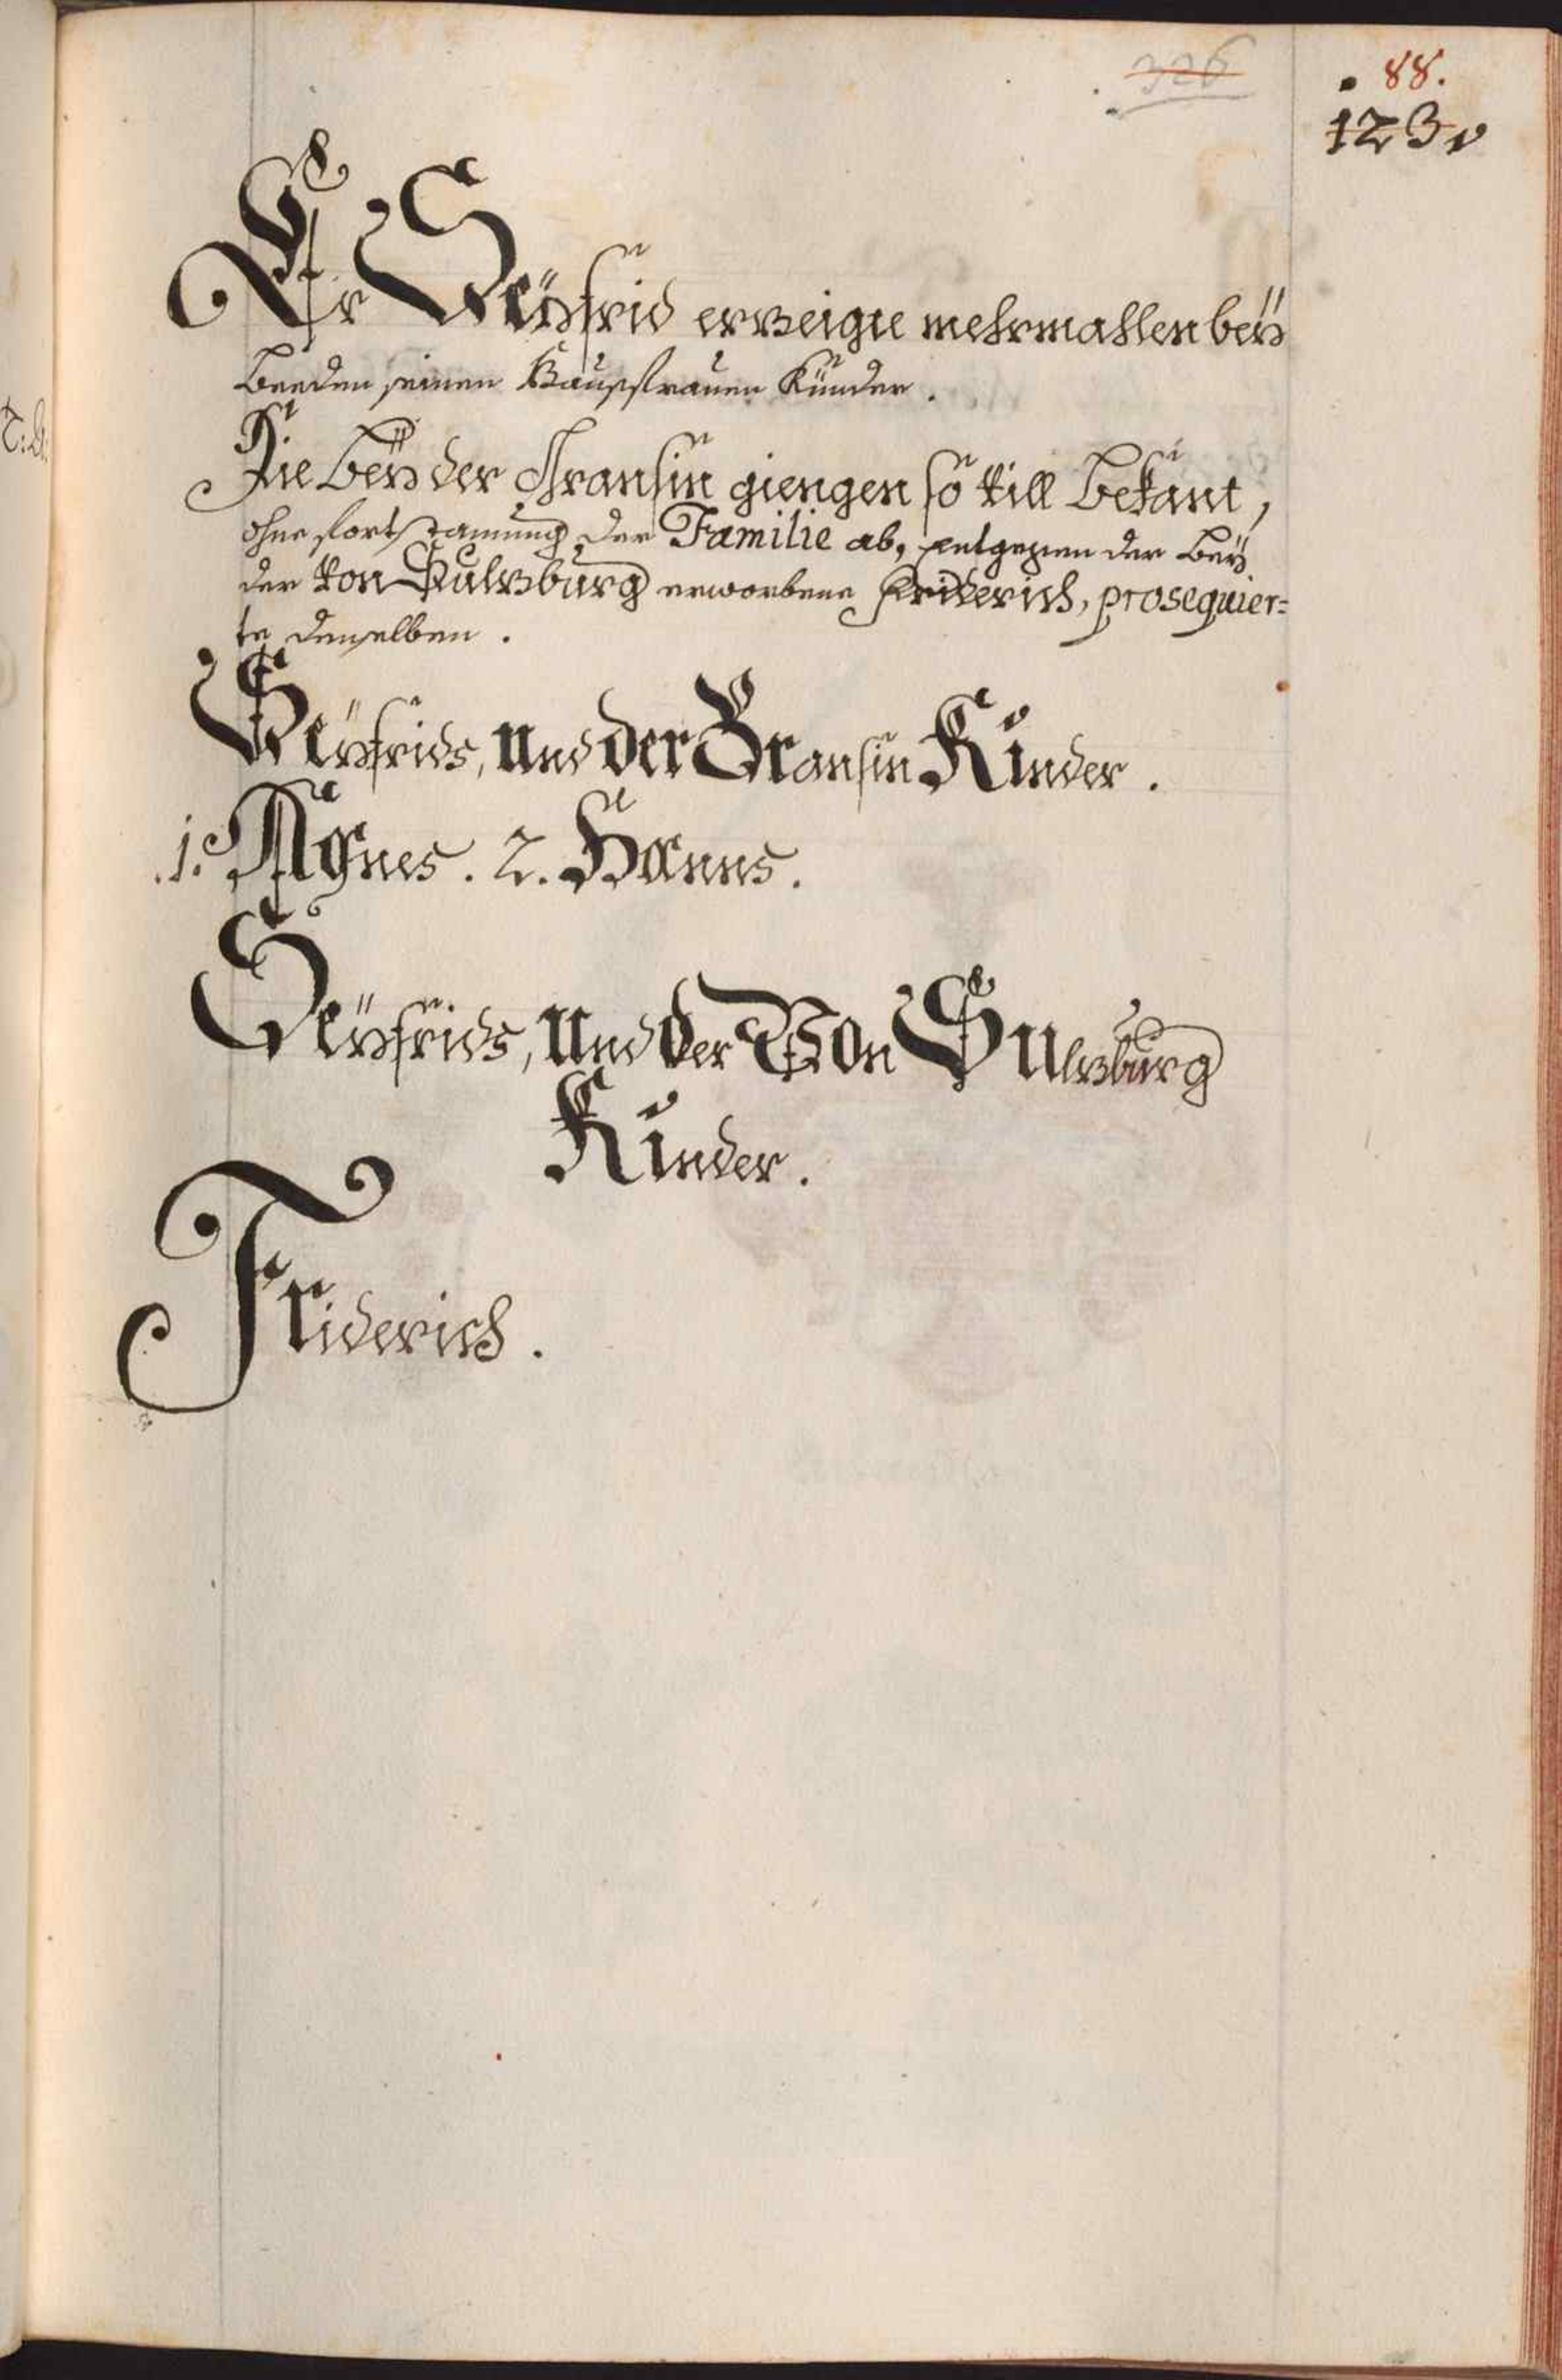 326
88.
123
Er Seÿfrid erzeigte mehrmahlen beÿ
beeden seinen Haußfrauen Künder.
Die beÿ der Gransin giengen so vill bekant,
ohne fortstamung der Familie ab, entgegen der beÿ
der von Sulzburg erworbene Friderich, prosequier=
te denselben.
Seÿfrids, und der Gransin Kinder.
1. Agnes. 2. Hanns.
Seÿfrids, und der Von Sulzburg
Kinder.
Friderich.